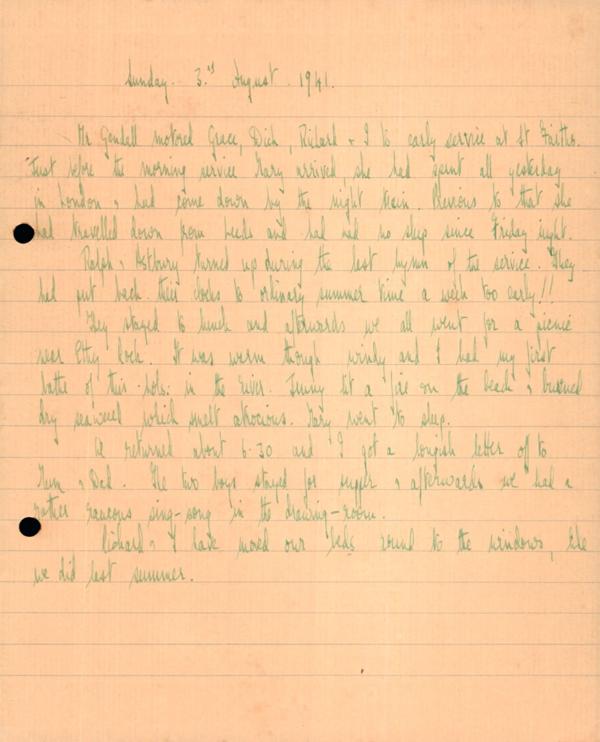 Sunday. 3.rd August. 1941.
Mr Gendall motored Grace, Dick, Richard & I to early service at St Faiths.
Just before the morning service Mary arrived, she had spent all yesterday
in London & had come down by the night train. Previous to that she
had travelled down from Leeds and had had no sleep since Friday night.
Ralph & Astbury turned up during the last hymn of the service. They
had put back their clocks to ordinary summer time a week too early!!
They stayed to lunch and afterwards we all went for a picnic
near Ethy lock. It was warm though windy and I had my first
bathe of this hols: in the river. Jimmy lit a fire on the beach & burned
dry seaweed which smelt atrocious. Mary went to sleep.
We returned about 6.30 and I got a longish letter off to
Mum & Dad. The two boys stayed for supper & afterwards we had a
rather raucous sing-song in the drawing-room.
Richard & I have moved our beds round to the windows, like
we did last summer.